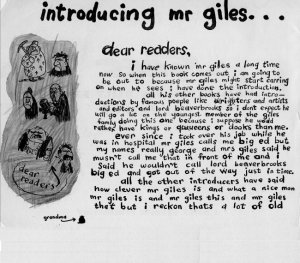 introducing mr giles...
dear redders,
i have known mr giles a long time
now so when this book comes out i am going to
be out to because mr giles might start carring
on when he sees i have done the introduction.
all his other books have had intro-
ductions by famous poeple like wrighters and artists
and editors and lord beaverbrooks so i dont expect he
will go a lot on the youngest member of the giles
family doing this one because i suppose he would
rather have kings or qauweens or dooks than me.
ever since i took over his job while he
was in hospital mr giles calls me big ed but
my names really george and mrs giles said he
musn't call me that in front of me and i
said he wouldn't call lord beaverbrooks
big ed and got out of the way just in time.
all the other introducers have said
how clever mr giles is and what a nice man
mr giles is and mr giles this and mr giles
that but i reckon thats a lot of old
dear
readers
grandma